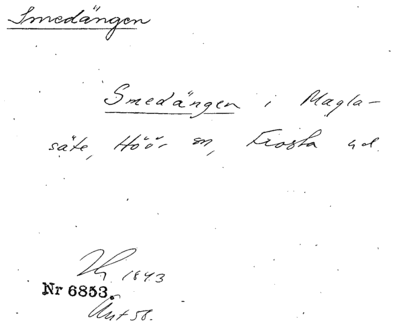 Smedängen
Smedängen i Magla-
säte, Höör sn, Frosta hd
1843
Nr 6853.